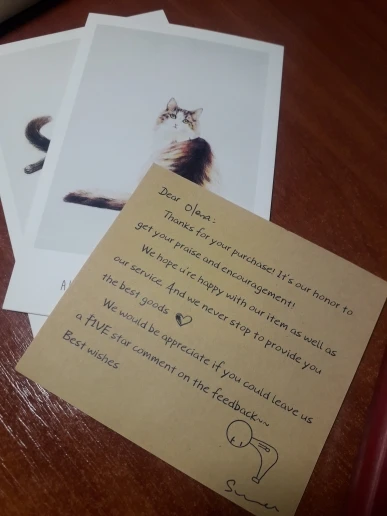 Dear Olena:
Thanks for your purchase! It's our honor to
get your praise and encouragement!
We hope u're happy with our item as well as
our service. And we never stop to provide you
the best goods
We would be appreciate if you could leave us
a fIVE star comment on the feedback~~
Best wishes